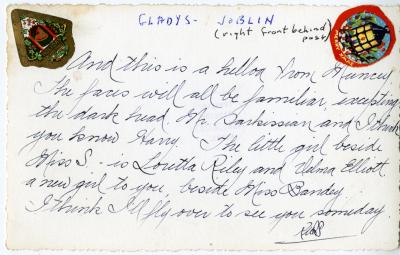 GLADYS - JOBLIN
(right front behind
post)
And this is a helloa from Muncey
The faces will all be familiar, excepting
the dark head, Mr. Sarkissian and I think
you know Harry. The little girl beside
Miss S - is Loretta Riley and Velma Elliott
a new girl to you, beside Miss Bandey
I think I'll fly over to see you someday